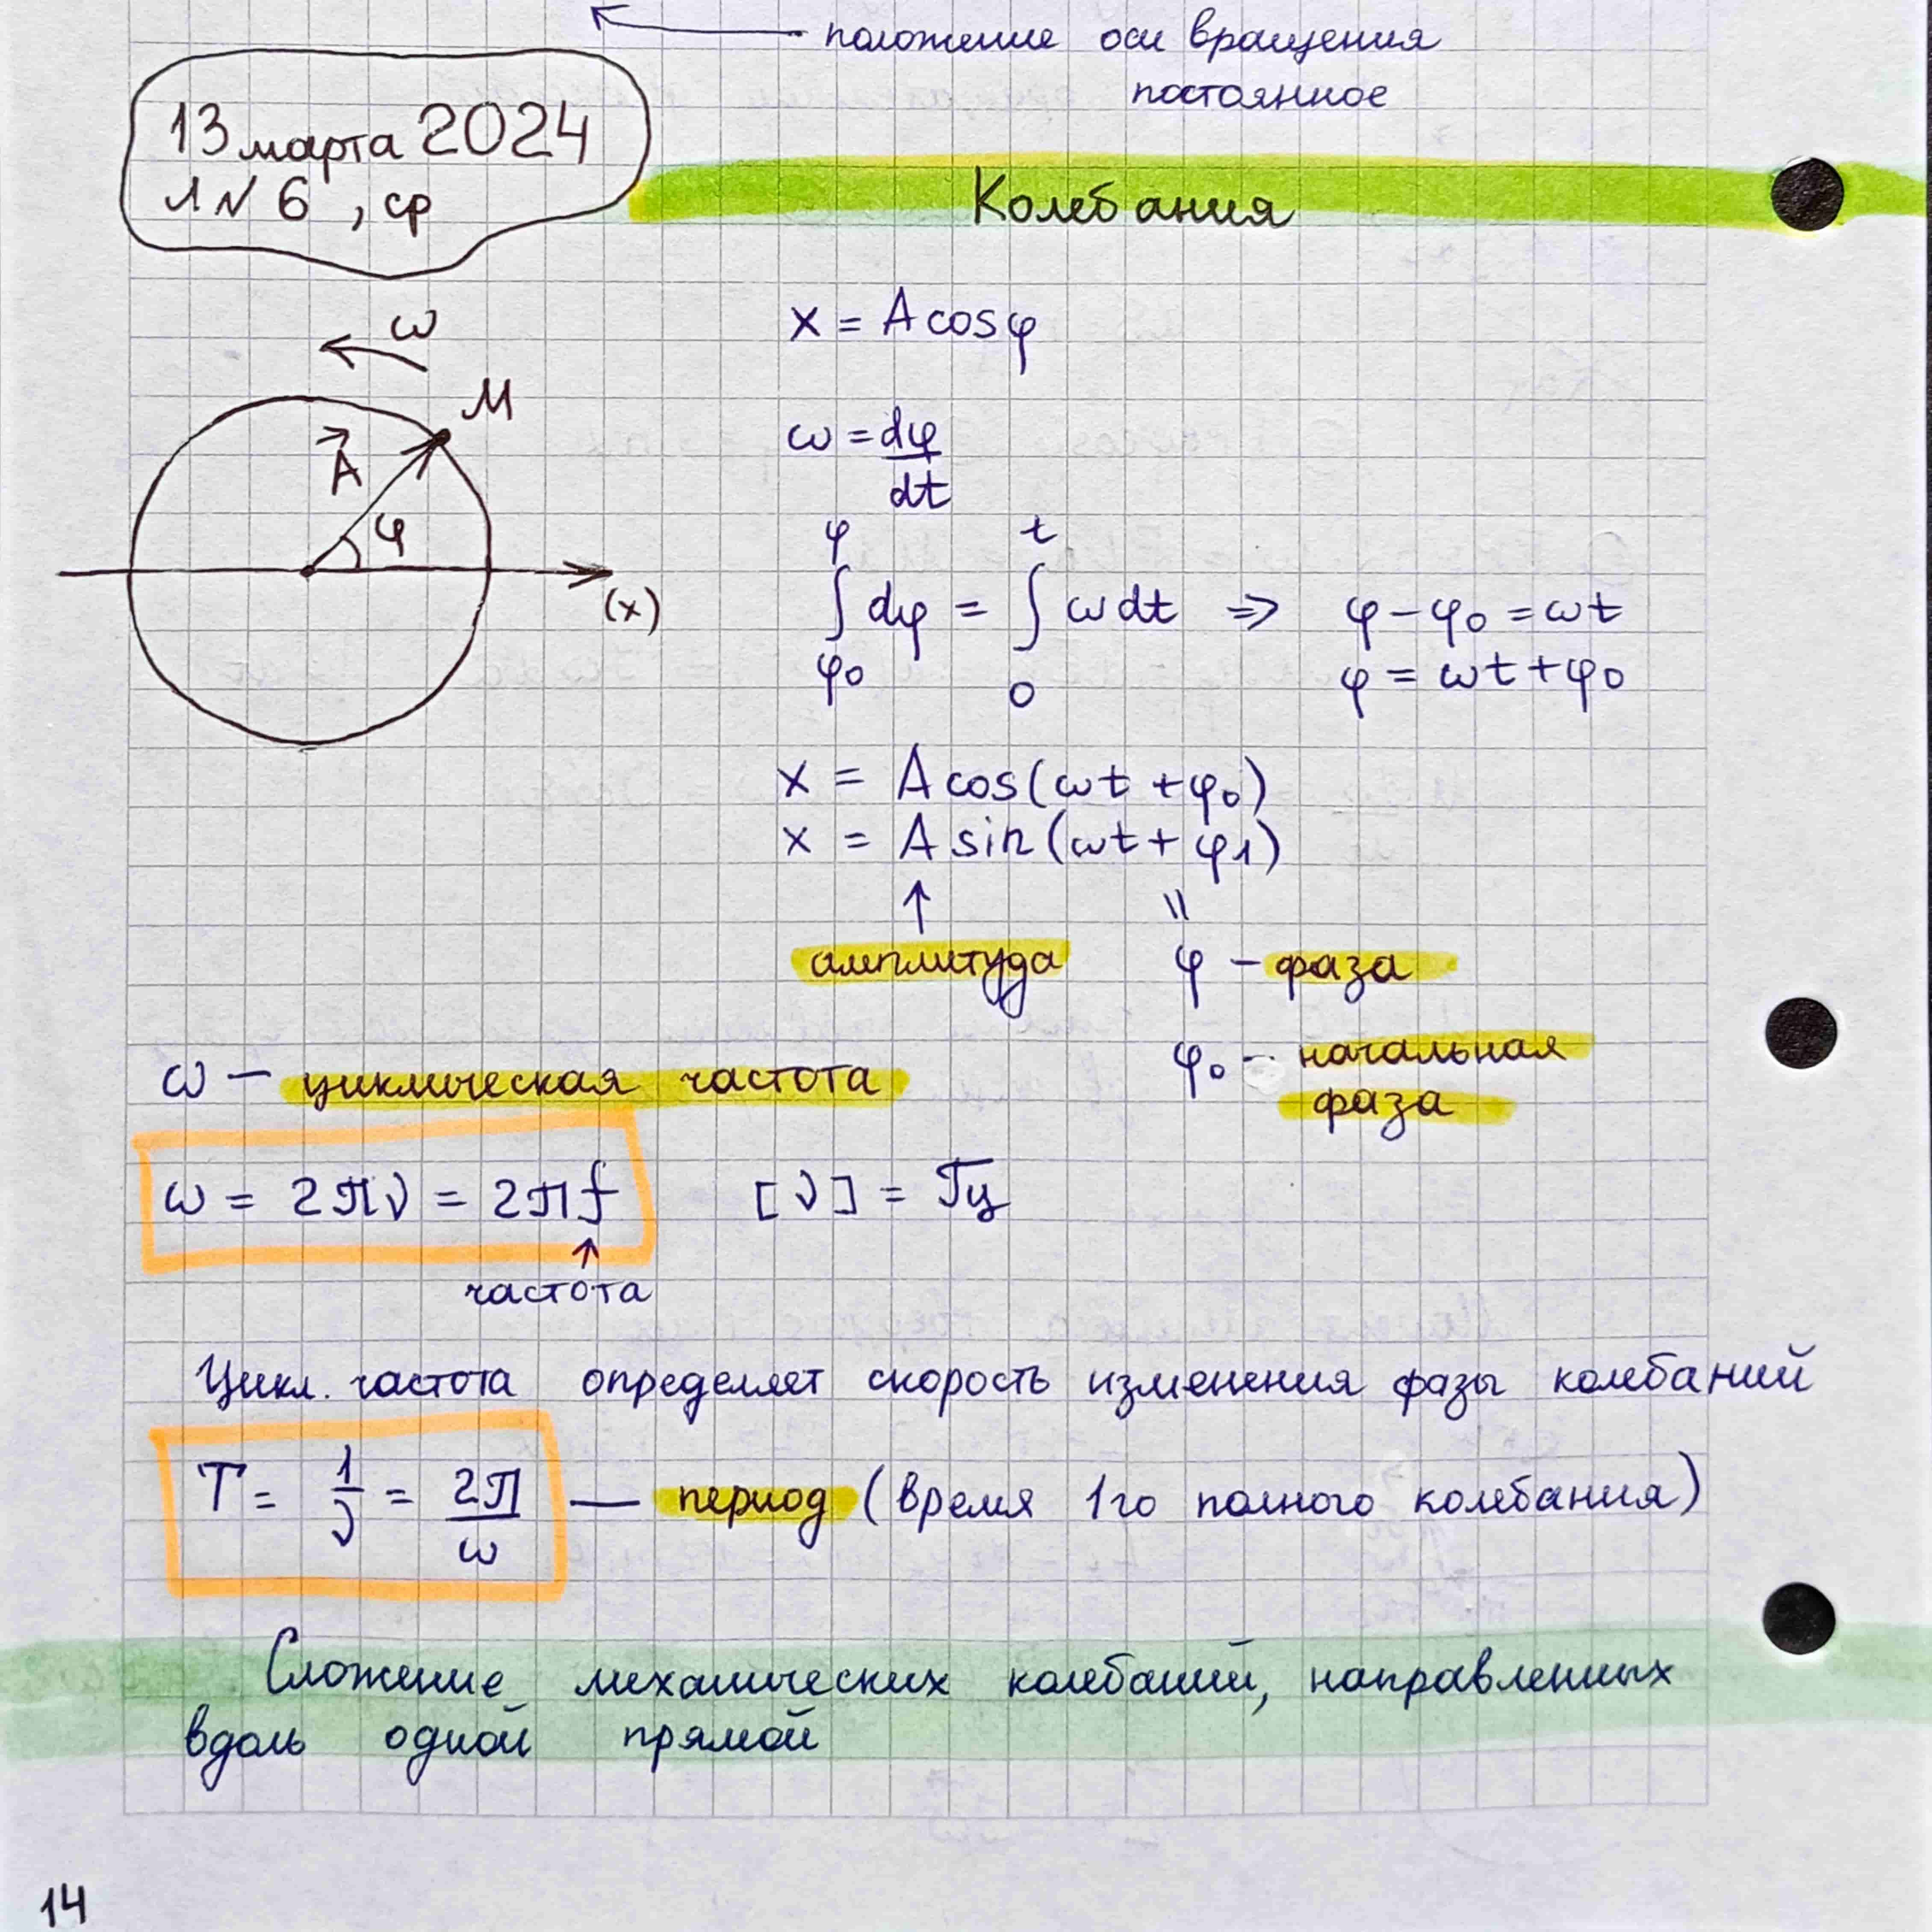 положение оси вращения
постоянное
13 марта 2024
л N 6 , ср
Колебания
x = A cos φ
ω
M
A⃗
φ
(x)
ω = dφ/dt
∫_{φ₀}^{φ} dφ = ∫_{0}^{t} ω dt ⇒ φ − φ₀ = ωt
φ = ωt + φ₀
x = A cos(ωt + φ₀)
x = A sin(ωt + φ₁)
↑ =
амплитуда φ – фаза
φ₀ – начальная
фаза
ω – циклическая частота
ω = 2πν = 2πf [ν] = Гц
↑
частота
Цикл. частота определяет скорость изменения фазы колебаний
T = 1/ν = 2π/ω — период (время 1го полного колебания)
Сложение механических колебаний, направленных
вдоль одной прямой
14